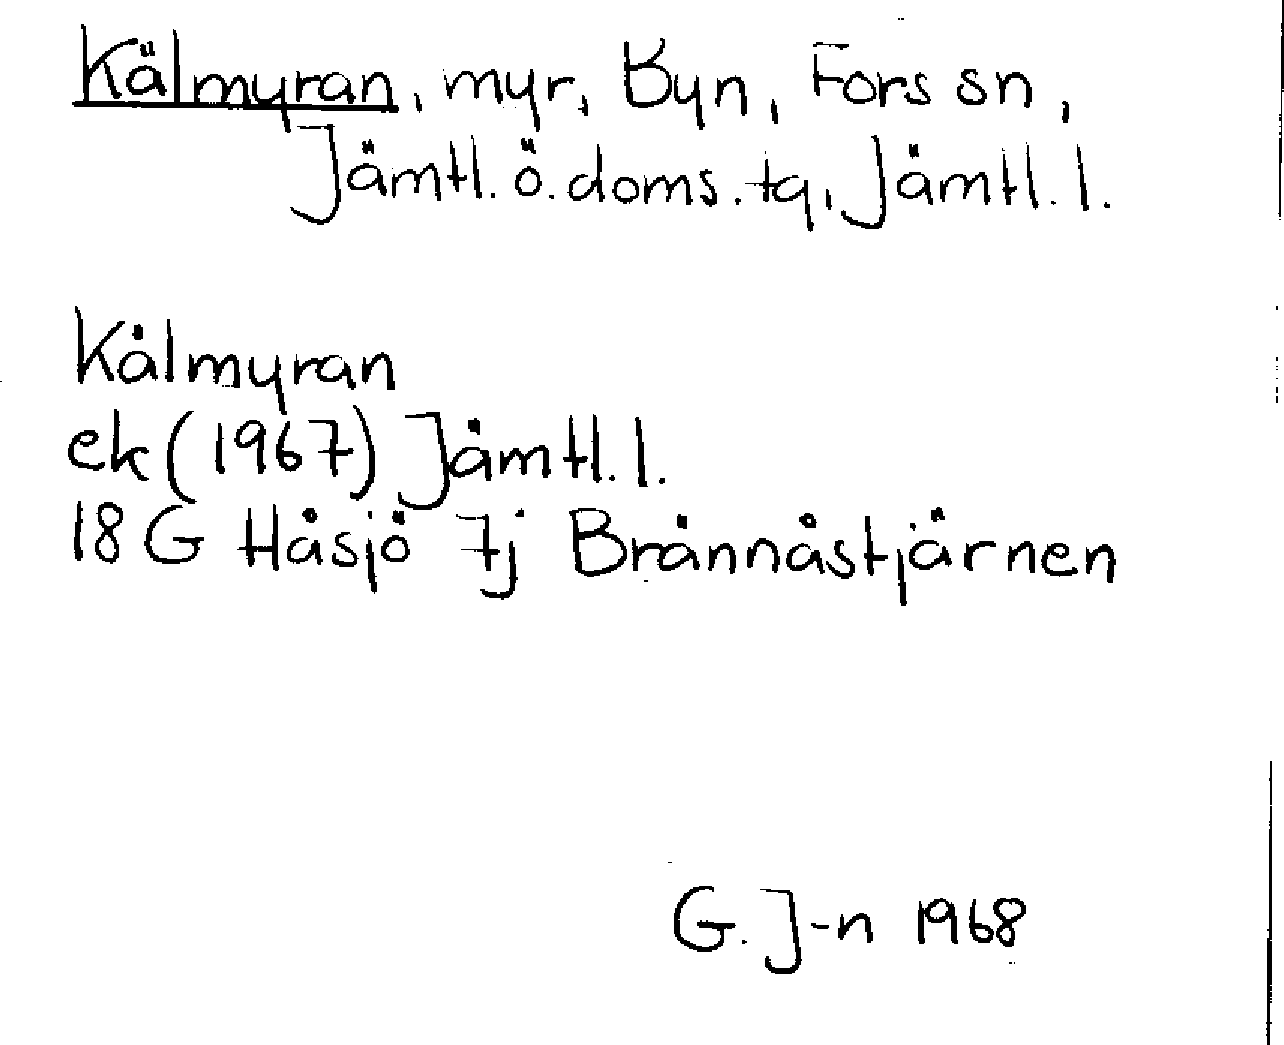 Kälmyran, myr, Byn, Fors sn,
Jämtl. ö. doms. tg, Jämtl. l.
Kälmyran
ek (1967) Jämtl. l.
18 G Håsjö 7j Brännåstjärnen
G. J-n 1968